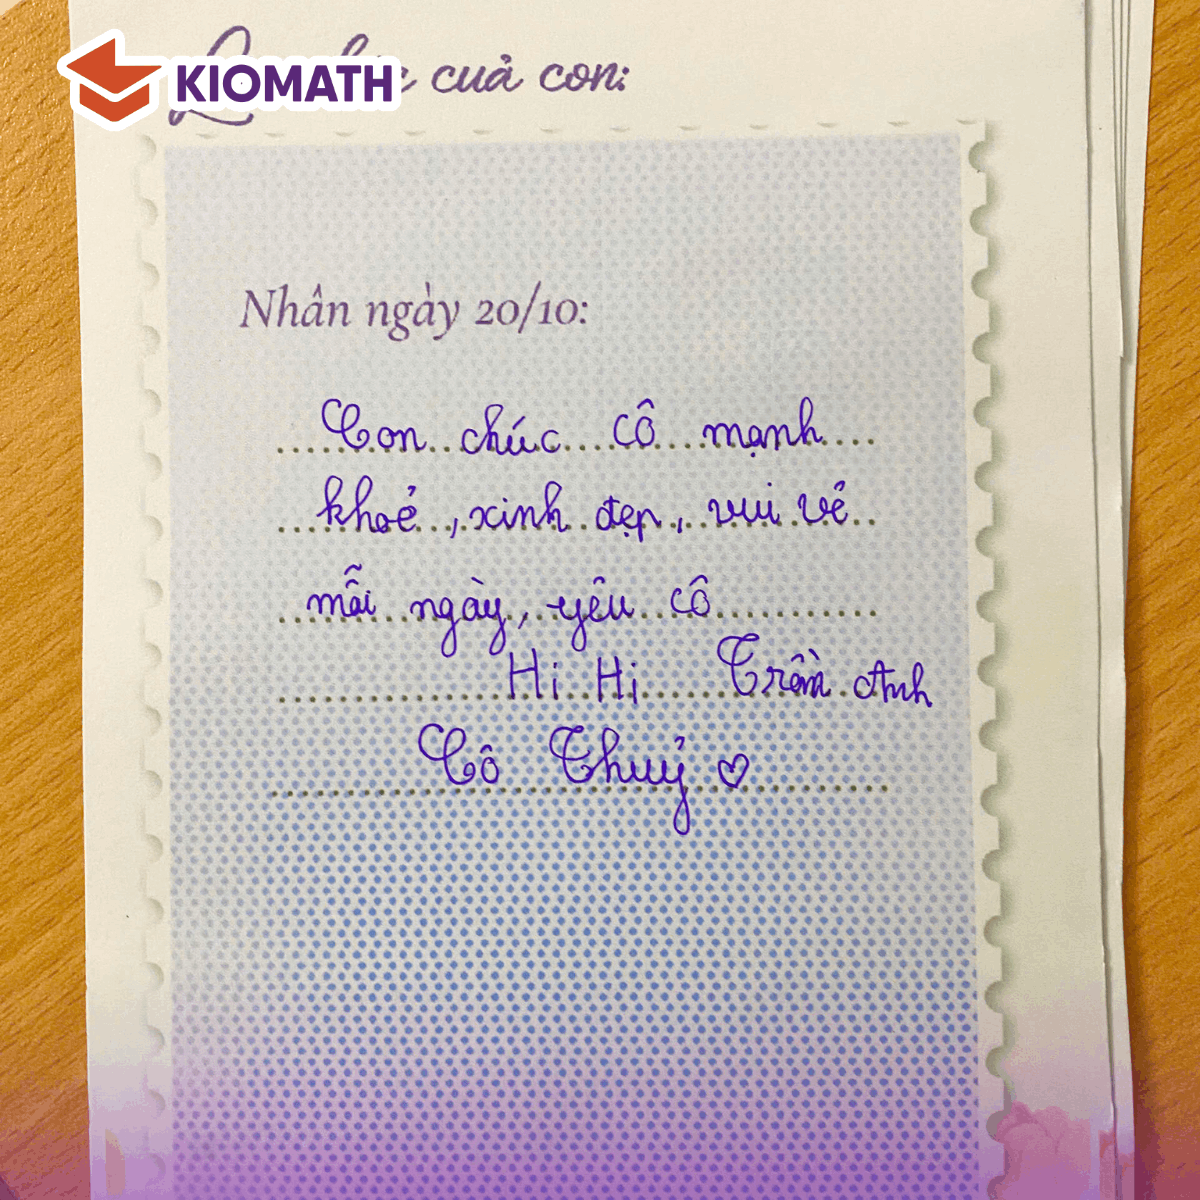 KIOMATH
của con:
Nhân ngày 20/10:
Con chúc cô mạnh
khoẻ, xinh đẹp, vui vẻ
mỗi ngày, yêu cô
Hi Hi Trâm Anh
Cô Thuỷ